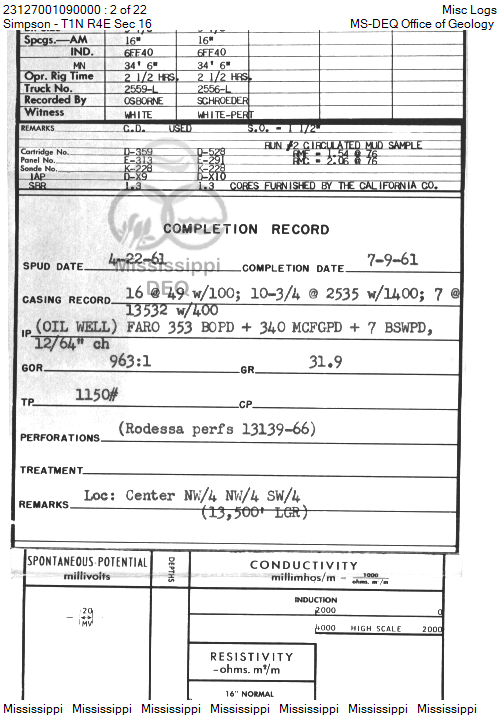 23127001090000 : 2 of 22 Misc Logs
Simpson - T1N R4E Sec 16 MS-DEQ Office of Geology
Spcgs.—AM 16" 16"
IND. 6FF40 6FF40
MN 34' 6" 34' 6"
Opr. Rig Time 2 1/2 HRS. 2 1/2 HRS.
Truck No. 2559-L 2556-L
Recorded By OSBORNE SCHROEDER
Witness WHITE WHITE-PERT
REMARKS C.D. USED S.O. - 1 1/2"
RUN #2 CIRCULATED MUD SAMPLE
RMF = 1.54 @ 76
RMC = 2.06 @ 76
Cartridge No. D-359 D-528
Panel No. E-313 E-291
Sonde No. K-228 K-228
IAP D-X9 D-X10
SBR 1.3 1.3 CORES FURNISHED BY THE CALIFORNIA CO.
COMPLETION RECORD
SPUD DATE 4-22-61 COMPLETION DATE 7-9-61
Mississippi
DEQ
CASING RECORD 16 @ 49 w/100; 10-3/4 @ 2535 w/1400; 7 @
13532 w/400
IP (OIL WELL) FARO 353 BOPD + 340 MCFGPD + 7 BSWPD,
12/64" ch
GOR 963:1 GR 31.9
TP 1150# CP
PERFORATIONS (Rodessa perfs 13139-66)
TREATMENT
REMARKS Loc: Center NW/4 NW/4 SW/4
(13,500' LGR)
SPONTANEOUS-POTENTIAL
millivolts
DEPTHS
CONDUCTIVITY
millimhos/m = 1000
ohms. m²/m
INDUCTION
2000 0
4000 HIGH SCALE 2000
- 20 +
MV
RESISTIVITY
-ohms. m²/m
16" NORMAL
Mississippi Mississippi Mississippi Mississippi Mississippi Mississippi Mississippi